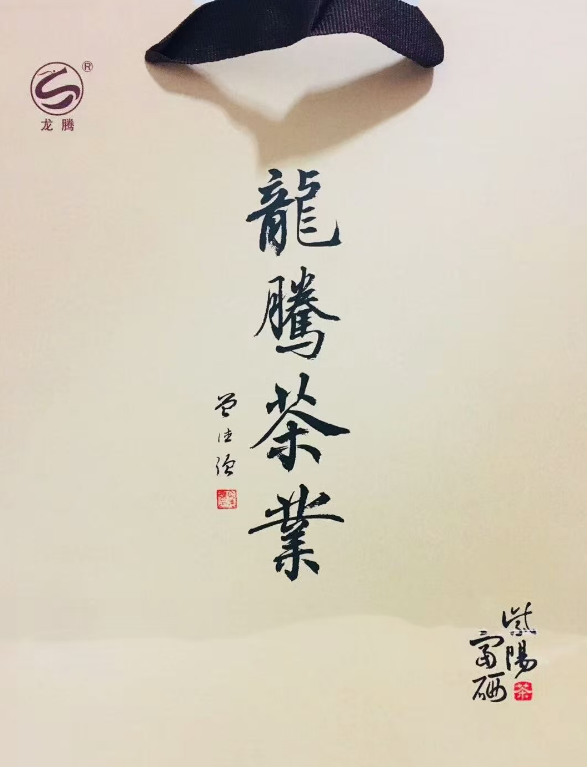 ®
龙腾
龍騰茶業
紫陽
富硒
茶